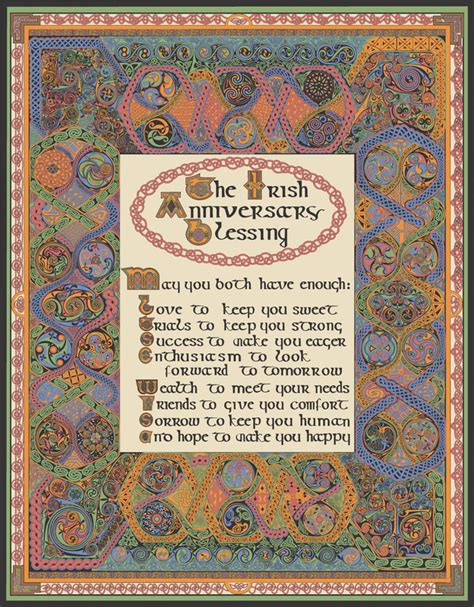 The Irish
Anniversary
Blessing
May you both have enough:
Love to keep you sweet
Trials to keep you strong
Success to make you eager
Enthusiasm to look
forward to tomorrow
Wealth to meet your needs
Friends to give you comfort
Sorrow to keep you human
And hope to make you happy